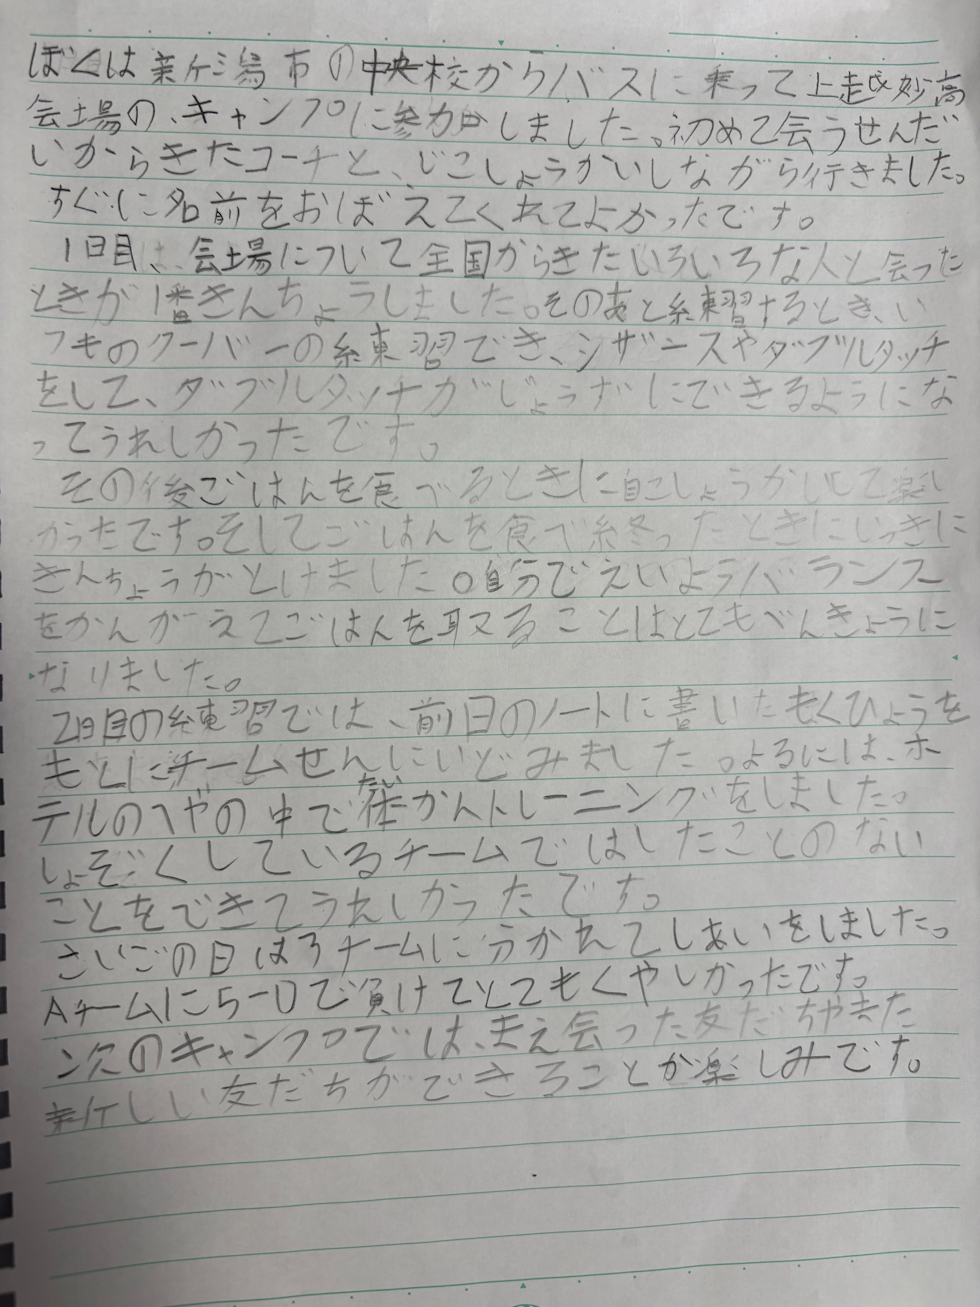 ぼくは新潟市の中央校からバスに乗って上越妙高
会場の、キャンプに参加しました。初めて会うせんだ
いからきたコーチと、じこしょうかいしながら行きました。
すぐに名前をおぼえてくれてよかったです。
1日目は、会場について全国からきたいろいろな人と会った
ときが1番きんちょうしました。そのあと練習するとき、い
つものクーバーの練習でき、シザースやダブルタッチ
をして、ダブルタッチがじょうずにできるようにな
ってうれしかったです。
その後ごはんを食べるときに自こしょうかいして楽し
かったです。そしてごはんを食べ終わったときにいっきに
きんちょうがとけました。自分でえいようバランス
をかんがえてごはんを取ることはとてもべんきょうに
なりました。
2日目の練習では、前日のノートに書いたもくひょうを
もとにチームせんにいどみました。よるには、ホ
テルのへやの中で体かんトレーニングをしました。
しょぞくしているチームではしたことのない
ことをできてうれしかったです。
さいごの日は3チームに分かれてしあいをしました。
Aチームに5-0で負けてとてもくやしかったです。
次のキャンプでは、まえ会った友だちやまた
新しい友だちができることが楽しみです。